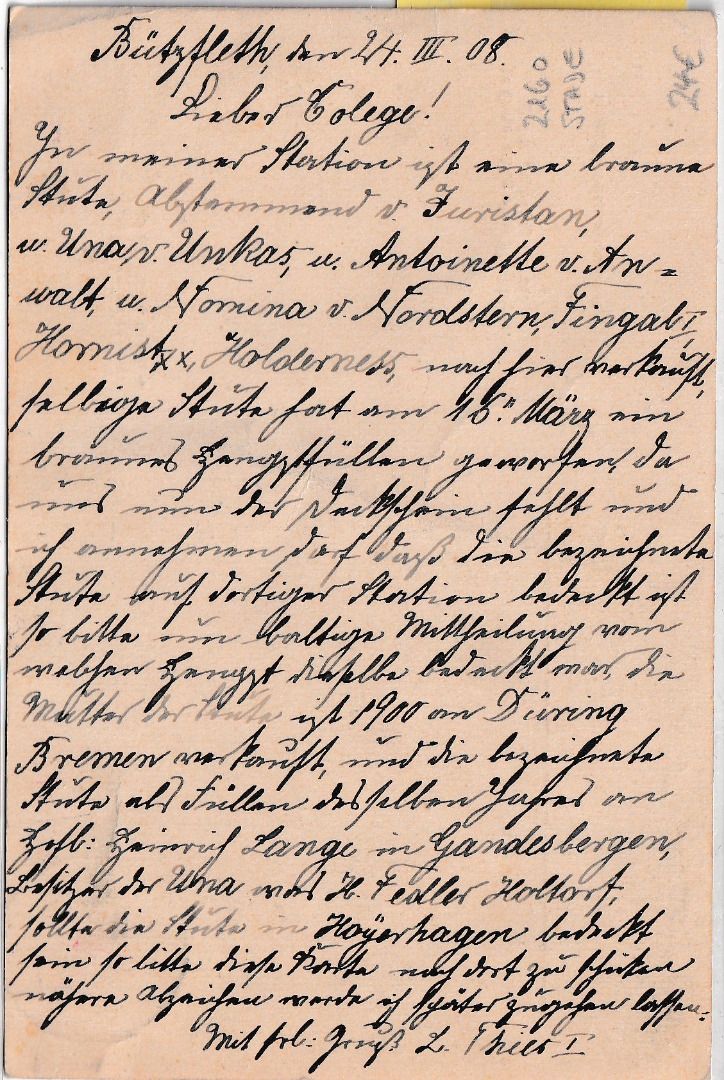 Bützfleth, den 24. III. 08.
2160
STADE
24€
Lieber Colege!
In meiner Station ist eine braune
Stute, Abstammend v. Juristan,
u. Una, v. Unkas, u. Antoinette v. An=
walt, u. Nomina v. Nordstern, Fingal I,
Hornist xx, Holderness, nach hier verkauft,
selbige Stute hat am 16ten März ein
braunes Hengstfüllen geworfen, da
uns nun der Deckschein fehlt und
ich annehmen darf daß die bezeichnete
Stute auf dortiger Station bedeckt ist
so bitte um baltige Mittheilung vom
welchen Hengst dieselbe bedeckt war, die
Mutter der Stute ist 1900 an Düring
Bremen verkauft, und die bezeichnete
Stute als Füllen desselben Jahres an
Hofb: Heinrich Lange in Gandesbergen,
Besitzer der Una war H. Fedler Holtorf,
sollte die Stute in Hoyerhagen bedeckt
sein so bitte diese Karte nach dort zu schicken
nähere Abzeichen werde ich später zugehen lassen.
Mit frl: Gruß L. Thies I